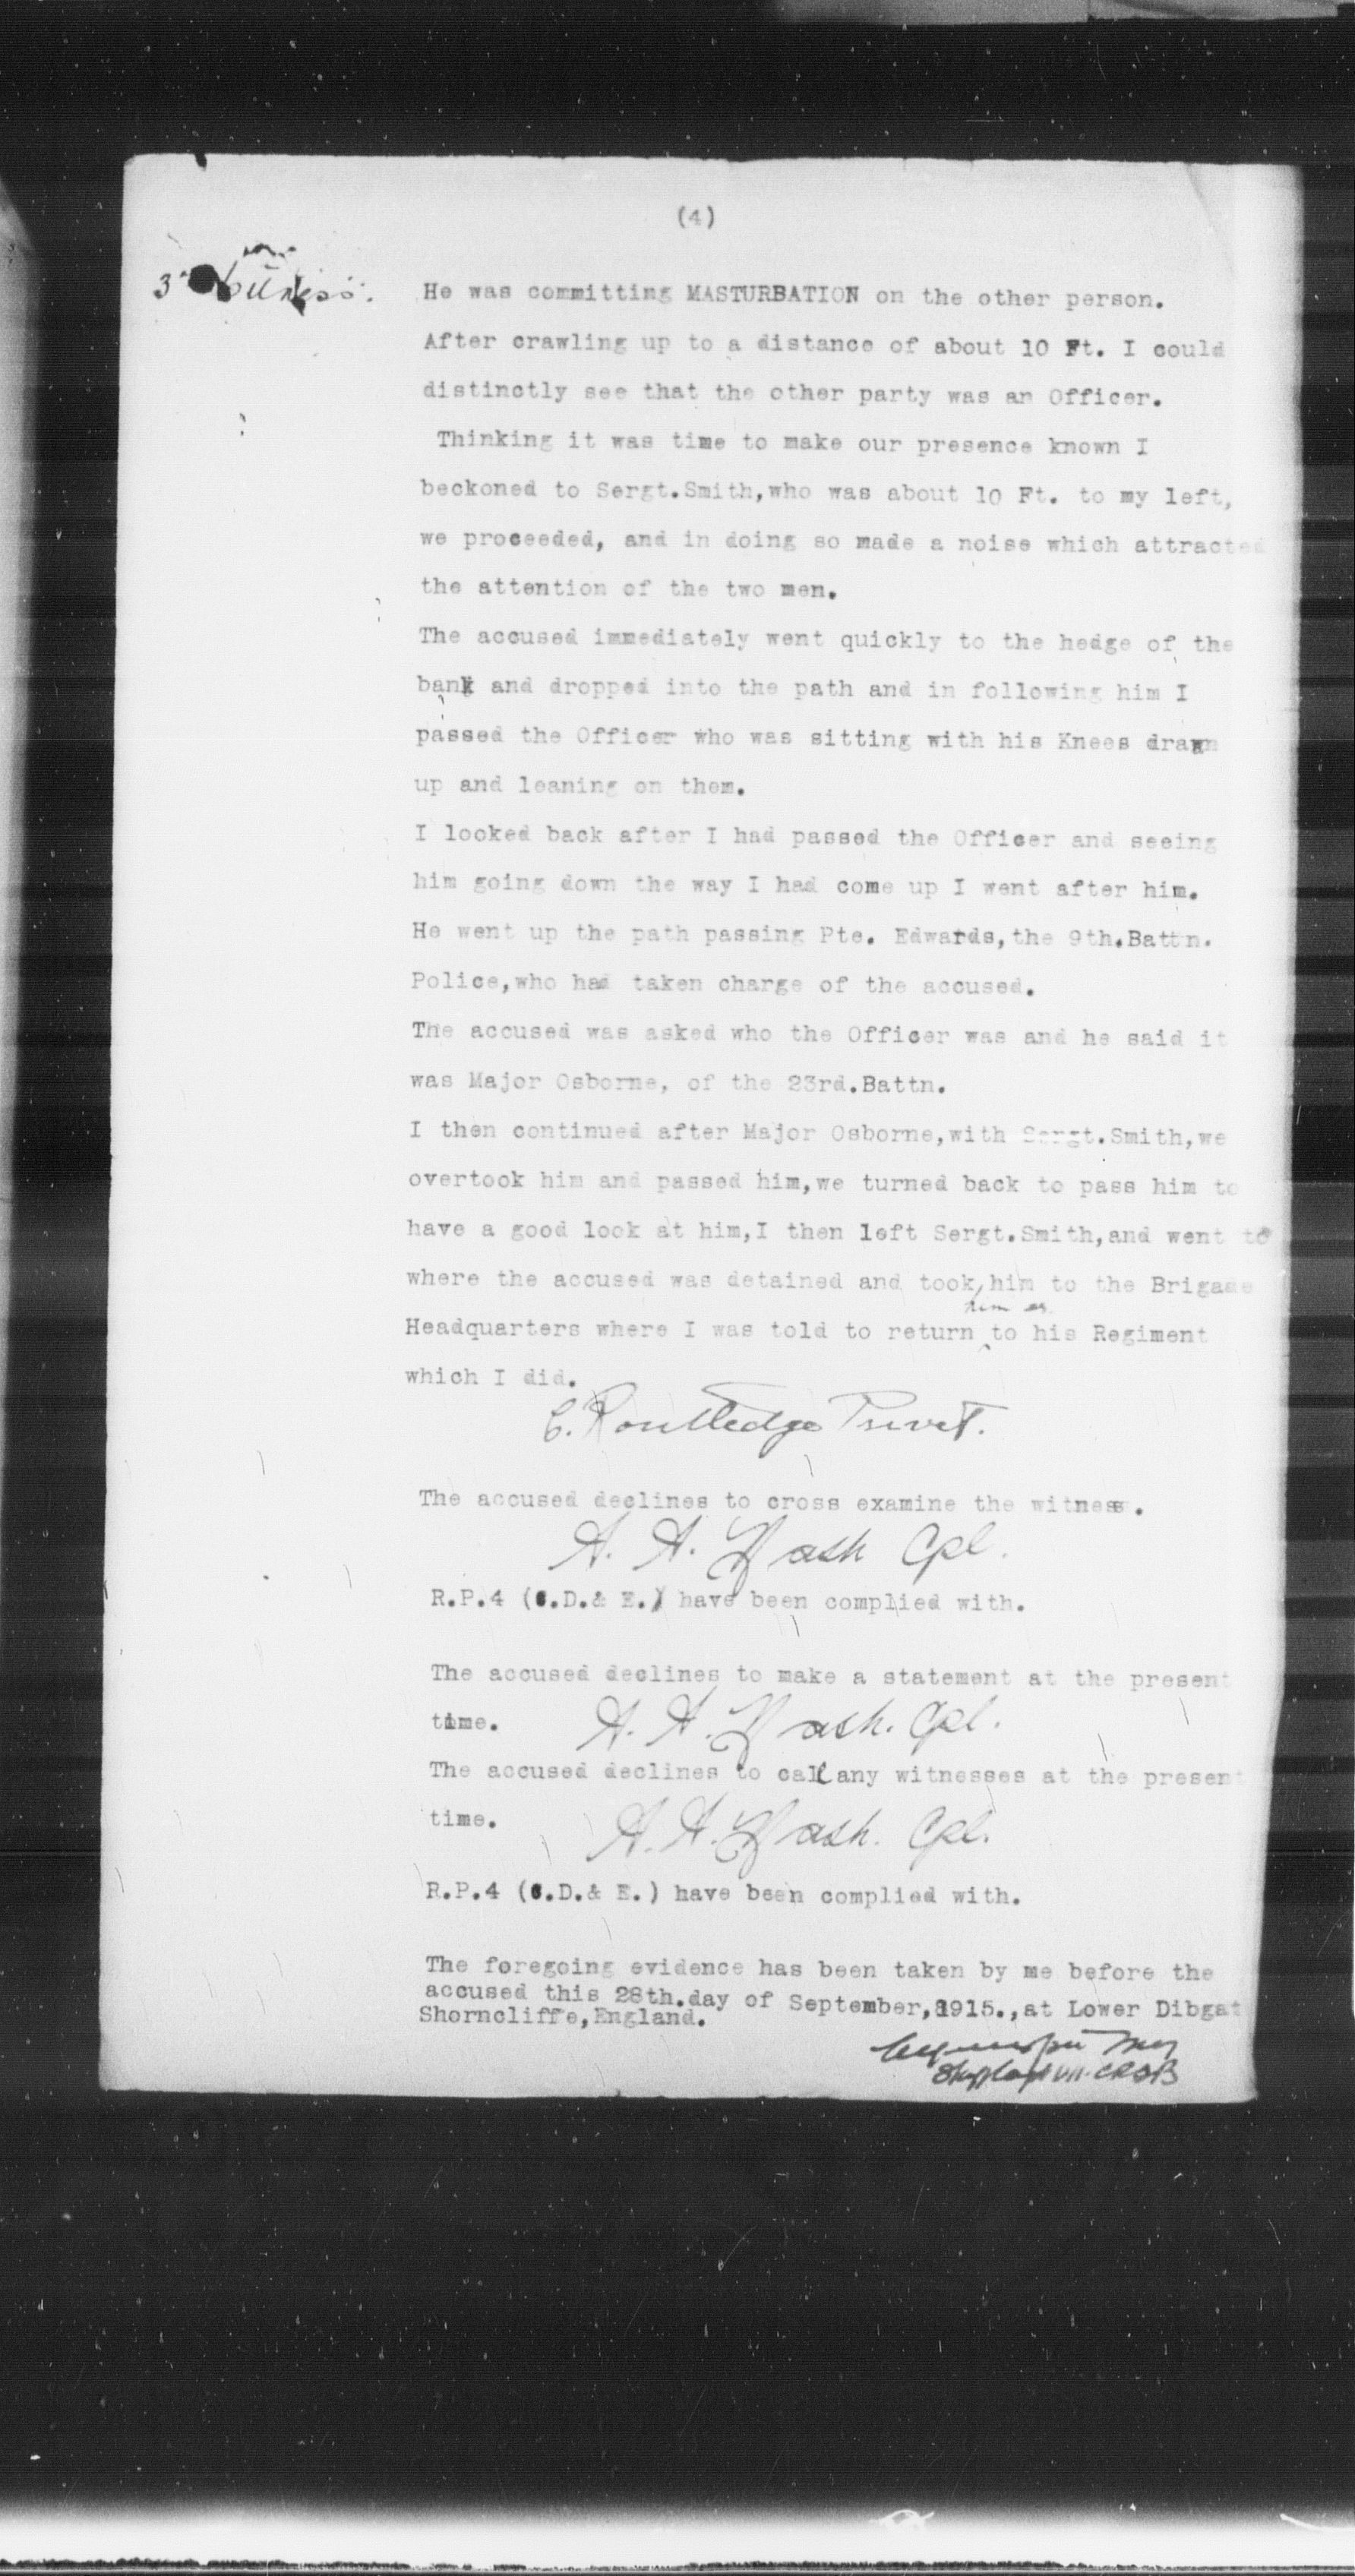 (4)
3rd Witness.
He was committing MASTURBATION on the other person.
After crawling up to a distance of about 10 Ft. I could
distinctly see that the other party was an Officer.
Thinking it was time to make our presence known I
beckoned to Sergt.Smith,who was about 10 Ft. to my left,
we proceeded, and in doing so made a noise which attracted
the attention of the two men.
The accused immediately went quickly to the hedge of the
bank and dropped into the path and in following him I
passed the Officer who was sitting with his Knees drawn
up and leaning on them.
I looked back after I had passed the Officer and seeing
him going down the way I had come up I went after him.
He went up the path passing Pte. Edwards,the 9th.Battn.
Police,who had taken charge of the accused.
The accused was asked who the Officer was and he said it
was Major Osborne, of the 23rd.Battn.
I then continued after Major Osborne,with Sergt.Smith,we
overtook him and passed him,we turned back to pass him to
have a good look at him,I then left Sergt.Smith,and went to
where the accused was detained and took,him to the Brigade
him
Headquarters where I was told to return ^to his Regiment
which I did.
C. Routledge
The accused declines to cross examine the witness.
A. A. Nash Cpl.
R.P.4 (C.D.& E.) have been complied with.
The accused declines to make a statement at the present
time. A. A. Nash. Cpl.
The accused declines to call any witnesses at the present
time. A. A. Nash. Cpl.
R.P.4 (C.D.& E.) have been complied with.
The foregoing evidence has been taken by me before the
accused this 28th.day of September,1915.,at Lower Dibgat
Shorncliffe,England.